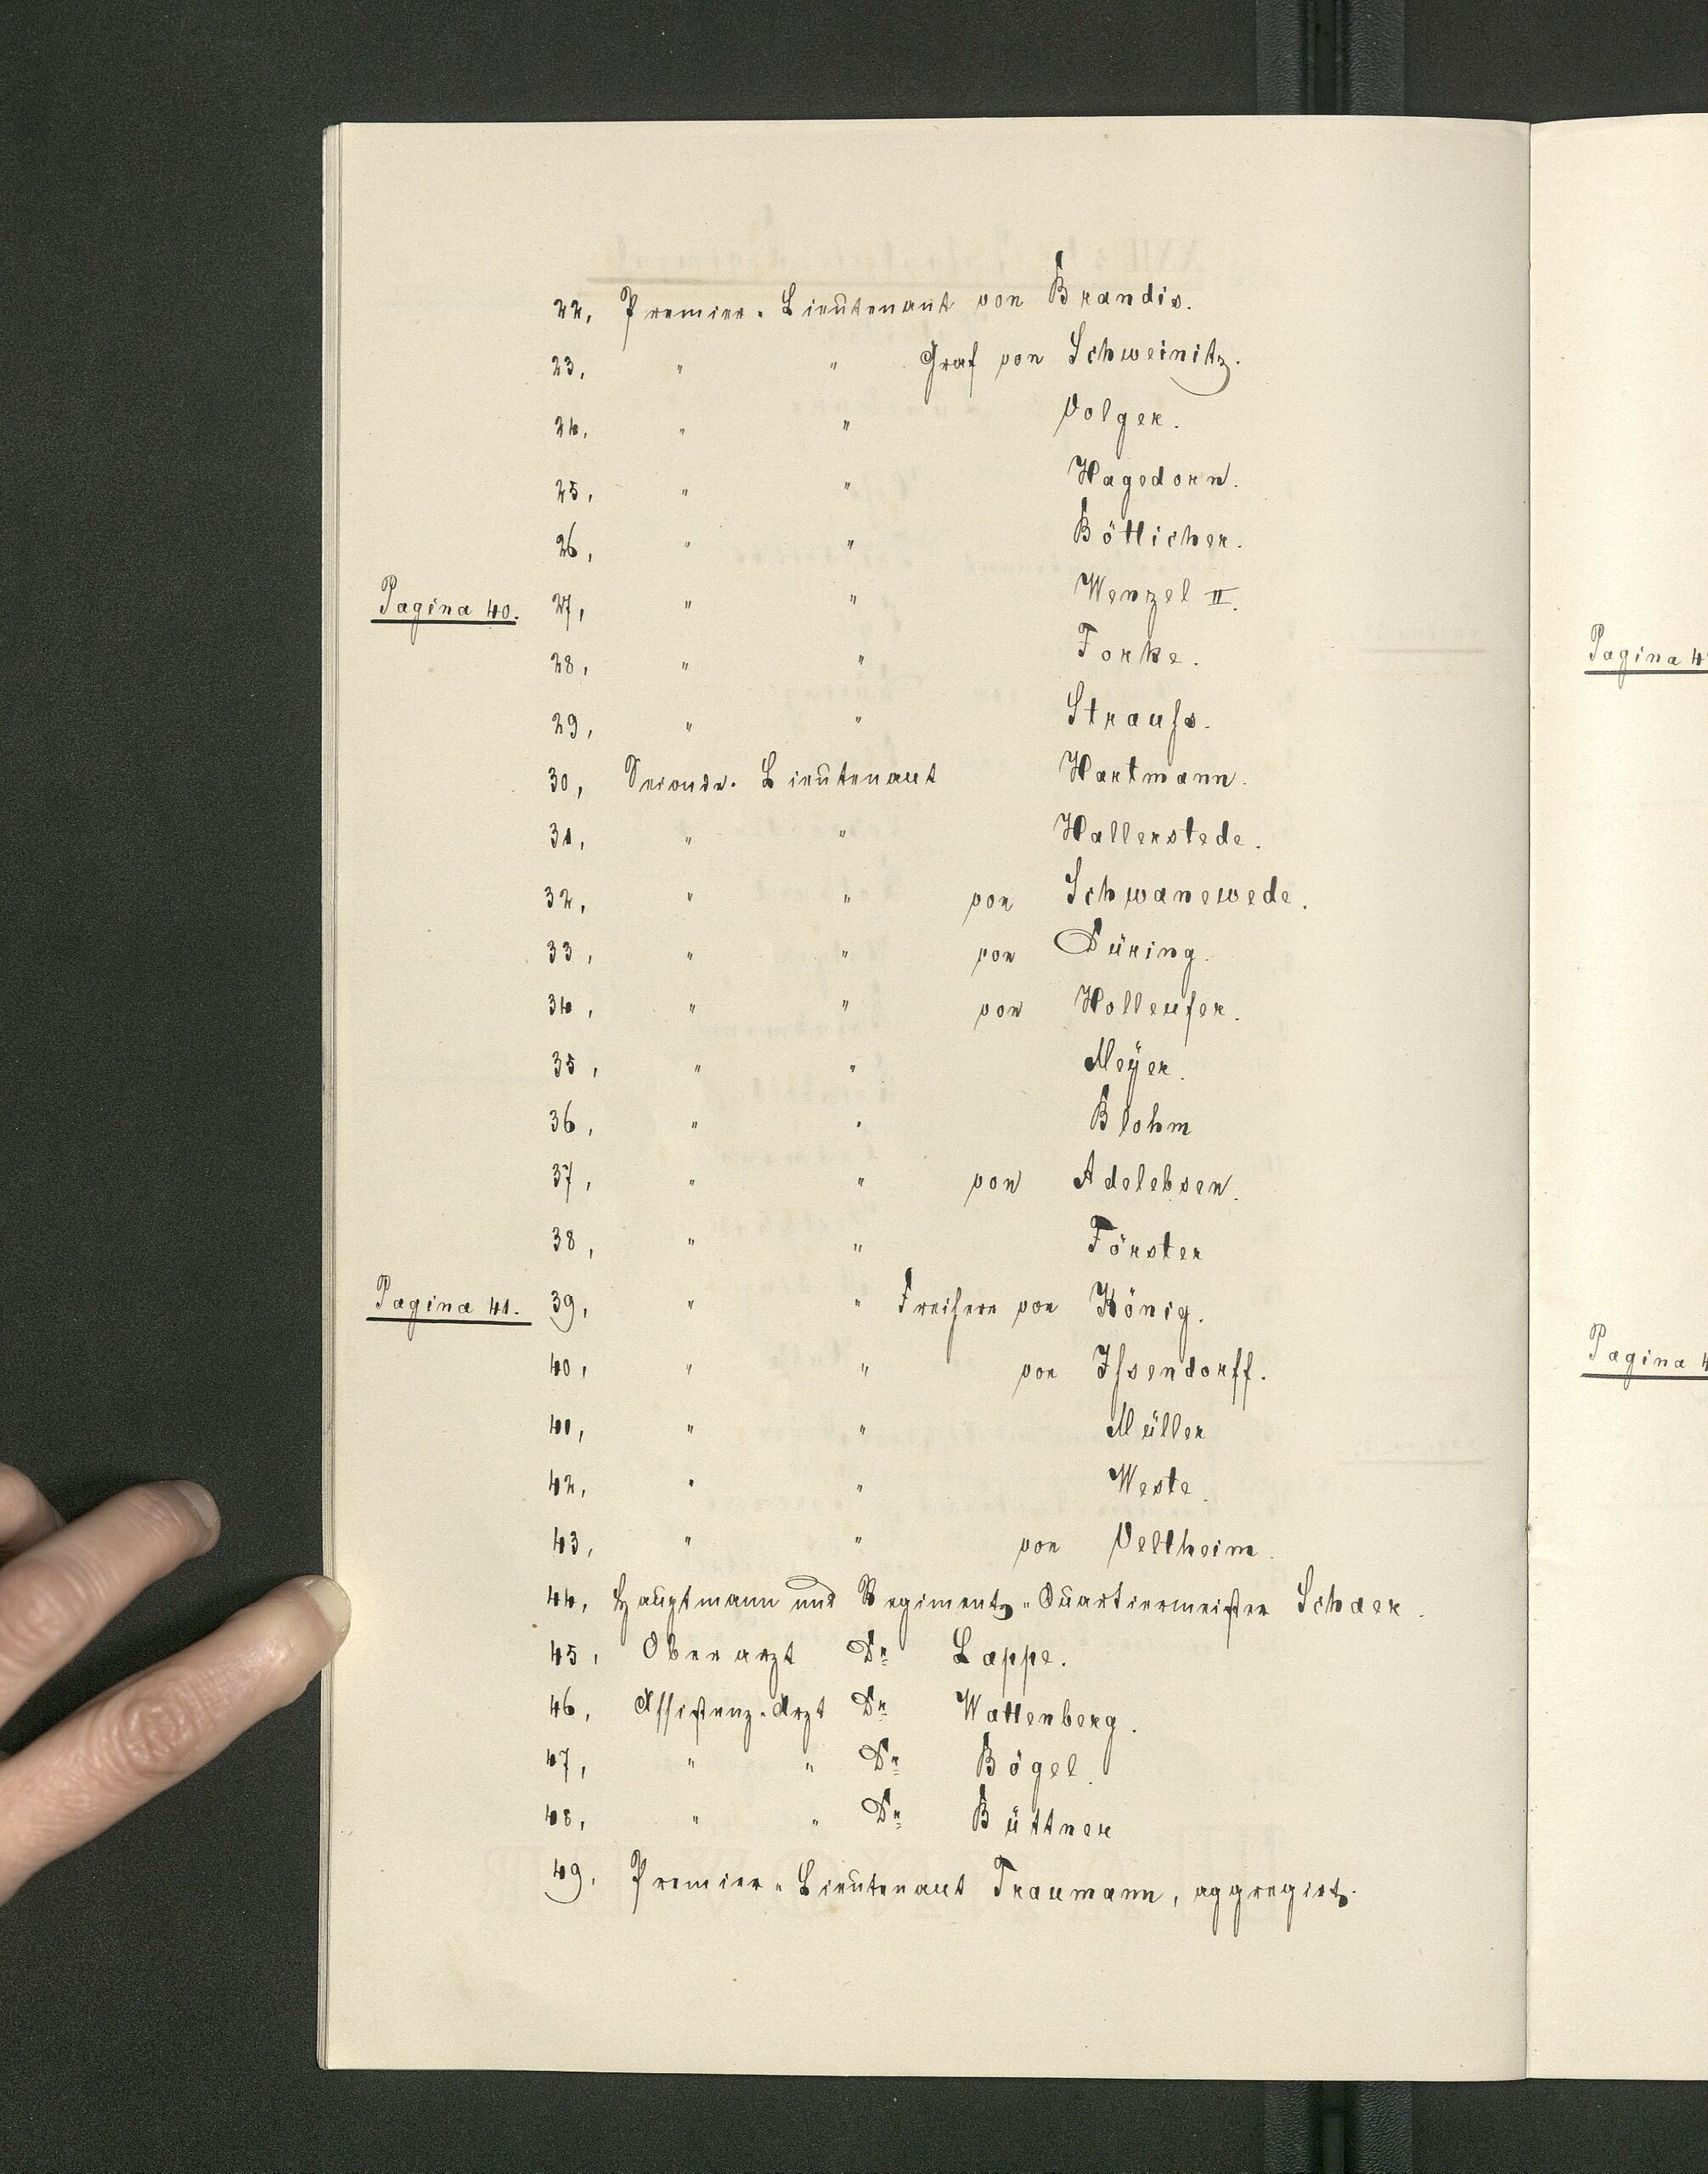 22, Premier-Lieutenant von Brandis.
23, " " Graf von Schweinitz.
24, " " Volger.
25, " " Hagedorn.
26, " " Bötticher.
Pagina 40. 27, " " Wenzel II.
28, " " Forke.
29, " " Strauſs.
30, Seconde-Lieutenant Hartmann.
31, " " Hallerstede.
32, " " von Schwanewede.
33, " " von Düring.
34, " " von Holleufer.
35, " " Meÿer.
36, " " Blohm
37, " " von Adelebsen.
38, " " Förster
Pagina 41. 39, " " Freiherr von König.
40, " " von Iſsendorff.
41, " " Müller
42, " " Weste.
43, " " von Veltheim.
44, Hauptmann und Regiments-Quartiermeister Schaer.
45, Oberarzt Dr Lappe.
46, Assistenz-Arzt Dr Wattenberg.
47, " " Dr Bögel.
48, " " Dr Büttner
49, Premier-Lieutenant Traumann, aggregirt.
Pagina
Pagina